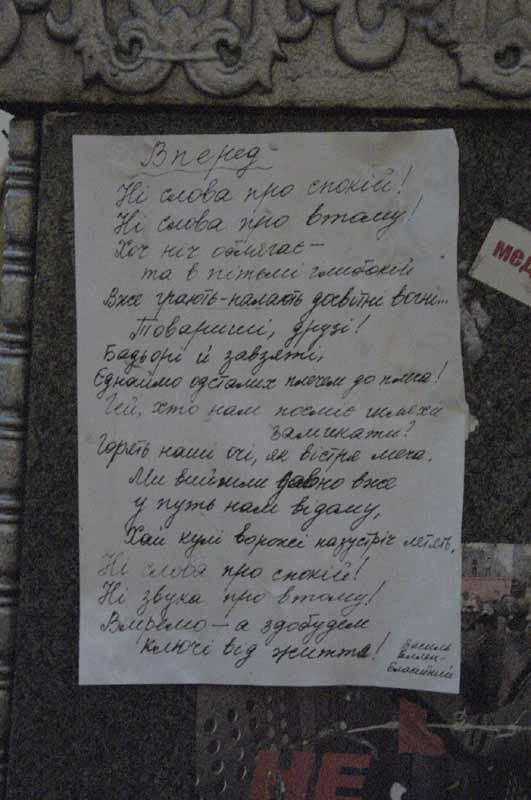 Вперед
Ні слова про спокій!
Ні слова про втому!
Хоч ніч облягає –
та в пітьмі глибокій
Вже грають-палають досвітні вогні...
Товариші, друзі!
Бадьорі й завзяті,
Єднаймо одсталих плечем до плеча!
Гей, хто нам посміє шляхи
замикати?
Горять наші очі, як вістря меча.
Ми вийшли давно вже
у путь нам відому,
Хай кулі ворожі назустріч летять.
Ні слова про спокій!
Ні звука про втому!
Вмремо – а здобудем
ключі від життя!
Василь
Еллан-
Блакитний
мед
НЕ